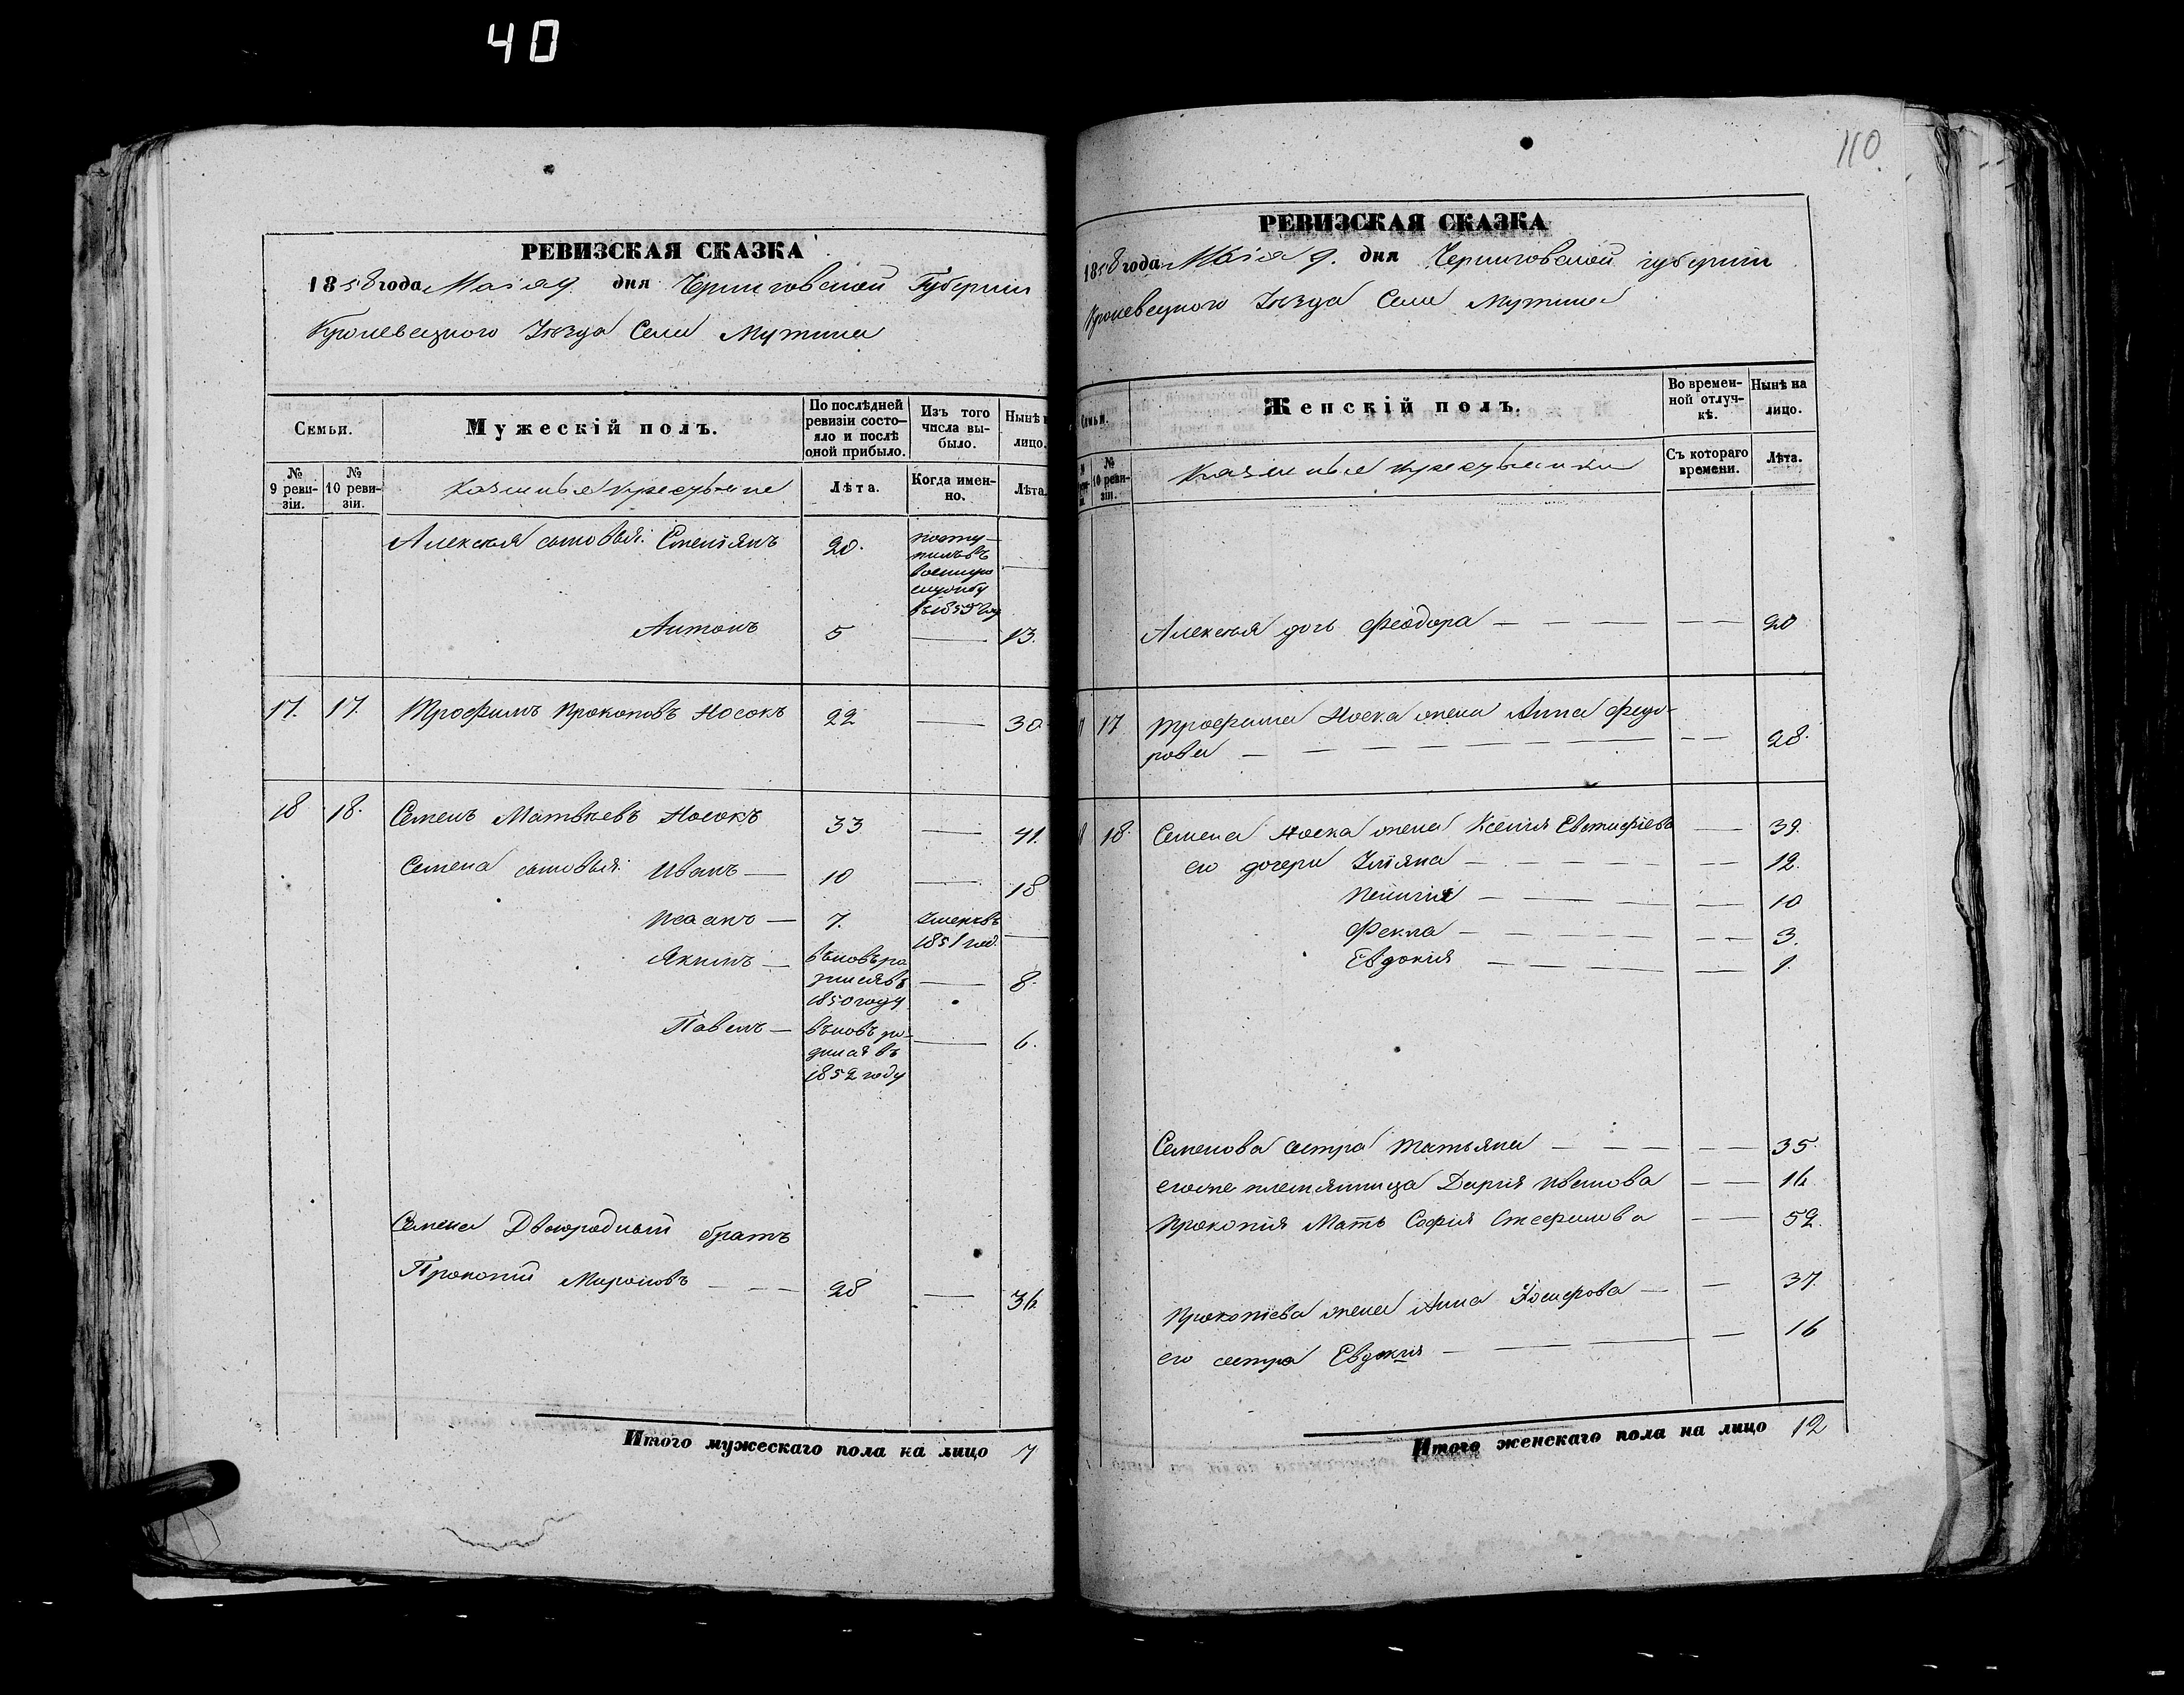 40
РЕВИЗСКАЯ СКАЗКА
1858 года Маія 9 дня Черниговской Губерніи
Кролевецкого Уѣзда Села Мутина
Семьи.
Мужескій полъ.
По послѣдней ревизіи состо-
яло и послѣ
оной прибыло.
Изъ того
числа вы-
было.
Нынѣ
лицо.
№
9 реви-
зіи.
№
10 реви-
зіи.
Казенные крестьяне
Лѣта.
Когда имен-
но.
Лѣта.
Алексѣя сыновья: Стефанъ 20.
посту-
пилъ въ
военную
службу
въ 1855 году
Антонъ 5 — 13.
17. 17. Трофимъ Прокоповъ Носокъ 22 — 30
18 18. Семенъ Матвѣевъ Носокъ 33 — 41.
Семена сыновья: Иванъ — 10 — 18
Исаакъ — 7. Умеръ въ
1851 год. —
Якимъ —
вновь ро
дился въ
1850 году
— 8.
Павелъ —
вновь ро-
дился въ
1852 году
— 6.
Семена Двоюродный братъ
Прокопій Мироновъ — — — 28 — 36
Итого мужескаго пола на лицо 7
110
РЕВИЗСКАЯ СКАЗКА
1858 года Маія 9. дня Черниговской губерніи
Кролевецкого Уѣзда Села Мутина
Семьи.
Женскій полъ.
Во времен-
ной отлуч-
кѣ.
Нынѣ на
лицо.
№
10 реви-
зіи.
Казенные крестьянки
Съ котораго
времени.
Лѣта.
Алексѣя дочь Феодора — — — — — 20
17 Трофима Носка жена Анна Федо-
рова — — — — — — — — 28.
18. Семена Носка жена Ксенія Евстафіева — 39.
его дочери Уліяна — — — — — — 12.
— — — — — 10
Фекла — — — — — — 3.
Евдокія — — — — — 1.
Семенова сестра Татьяна — — — — — 35.
его же племянница Дарія Иванова — — 16
Прокопія Мать Софія Стефанова — — 52.
Прокопіева жена Анна Іосифова — — 37.
его сестра Евдокія — — — 16
Итого женскаго пола на лицо 12